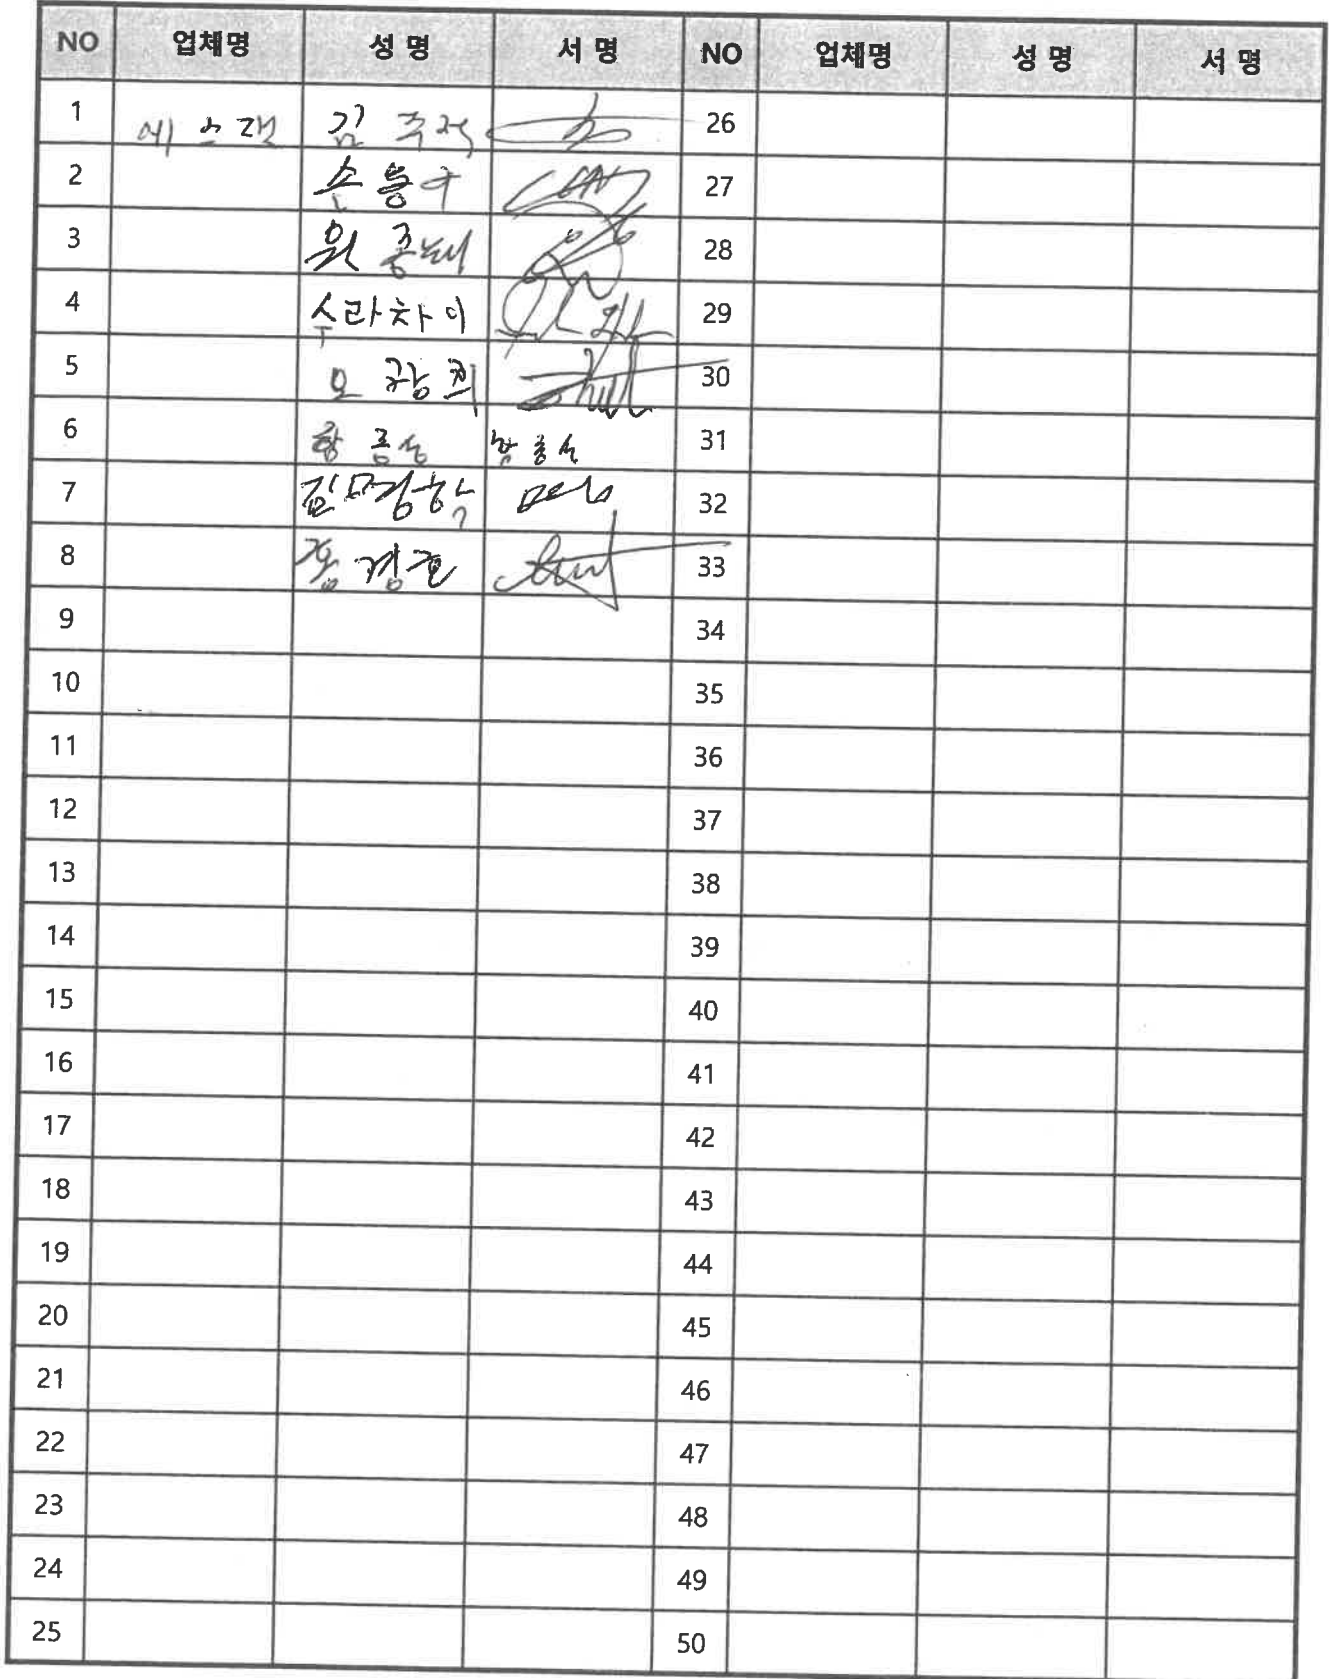 NO 업체명 성 명 서 명 NO 업체명 성 명 서 명
1 에스 김 26
2 손 27
3 28
4 수라차이 29
5 오 30
6 31
7 김명학 32
8 홍경표 33
9 34
10 35
11 36
12 37
13 38
14 39
15 40
16 41
17 42
18 43
19 44
20 45
21 46
22 47
23 48
24 49
25 50